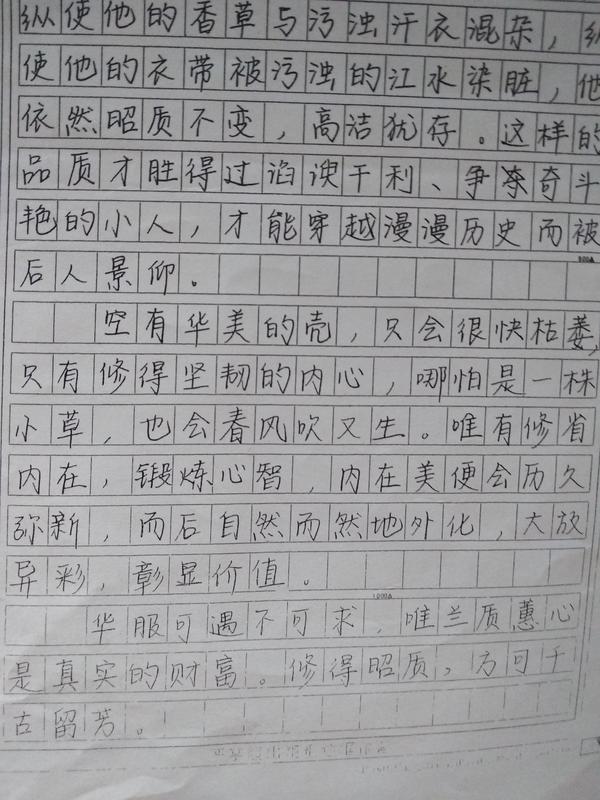 纵使他的香草与污浊汗衣混杂，纵
使他的衣带被污浊的江水染脏，他
依然昭质不变，高洁犹存。这样的
品质才胜得过谄谀干利、争奈奇斗
艳的小人，才能穿越漫漫历史而被
800△
后人景仰。
空有华美的壳，只会很快枯萎，
只有修得坚韧的内心，哪怕是一株
小草，也会春风吹又生。唯有修省
内在，锻炼心智，内在美便会历久
弥新，而后自然而然地外化，大放
异彩，彰显价值。
1000△
华服可遇不可求，唯兰质蕙心
是真实的财富。修得昭质，方可千
古留芳。